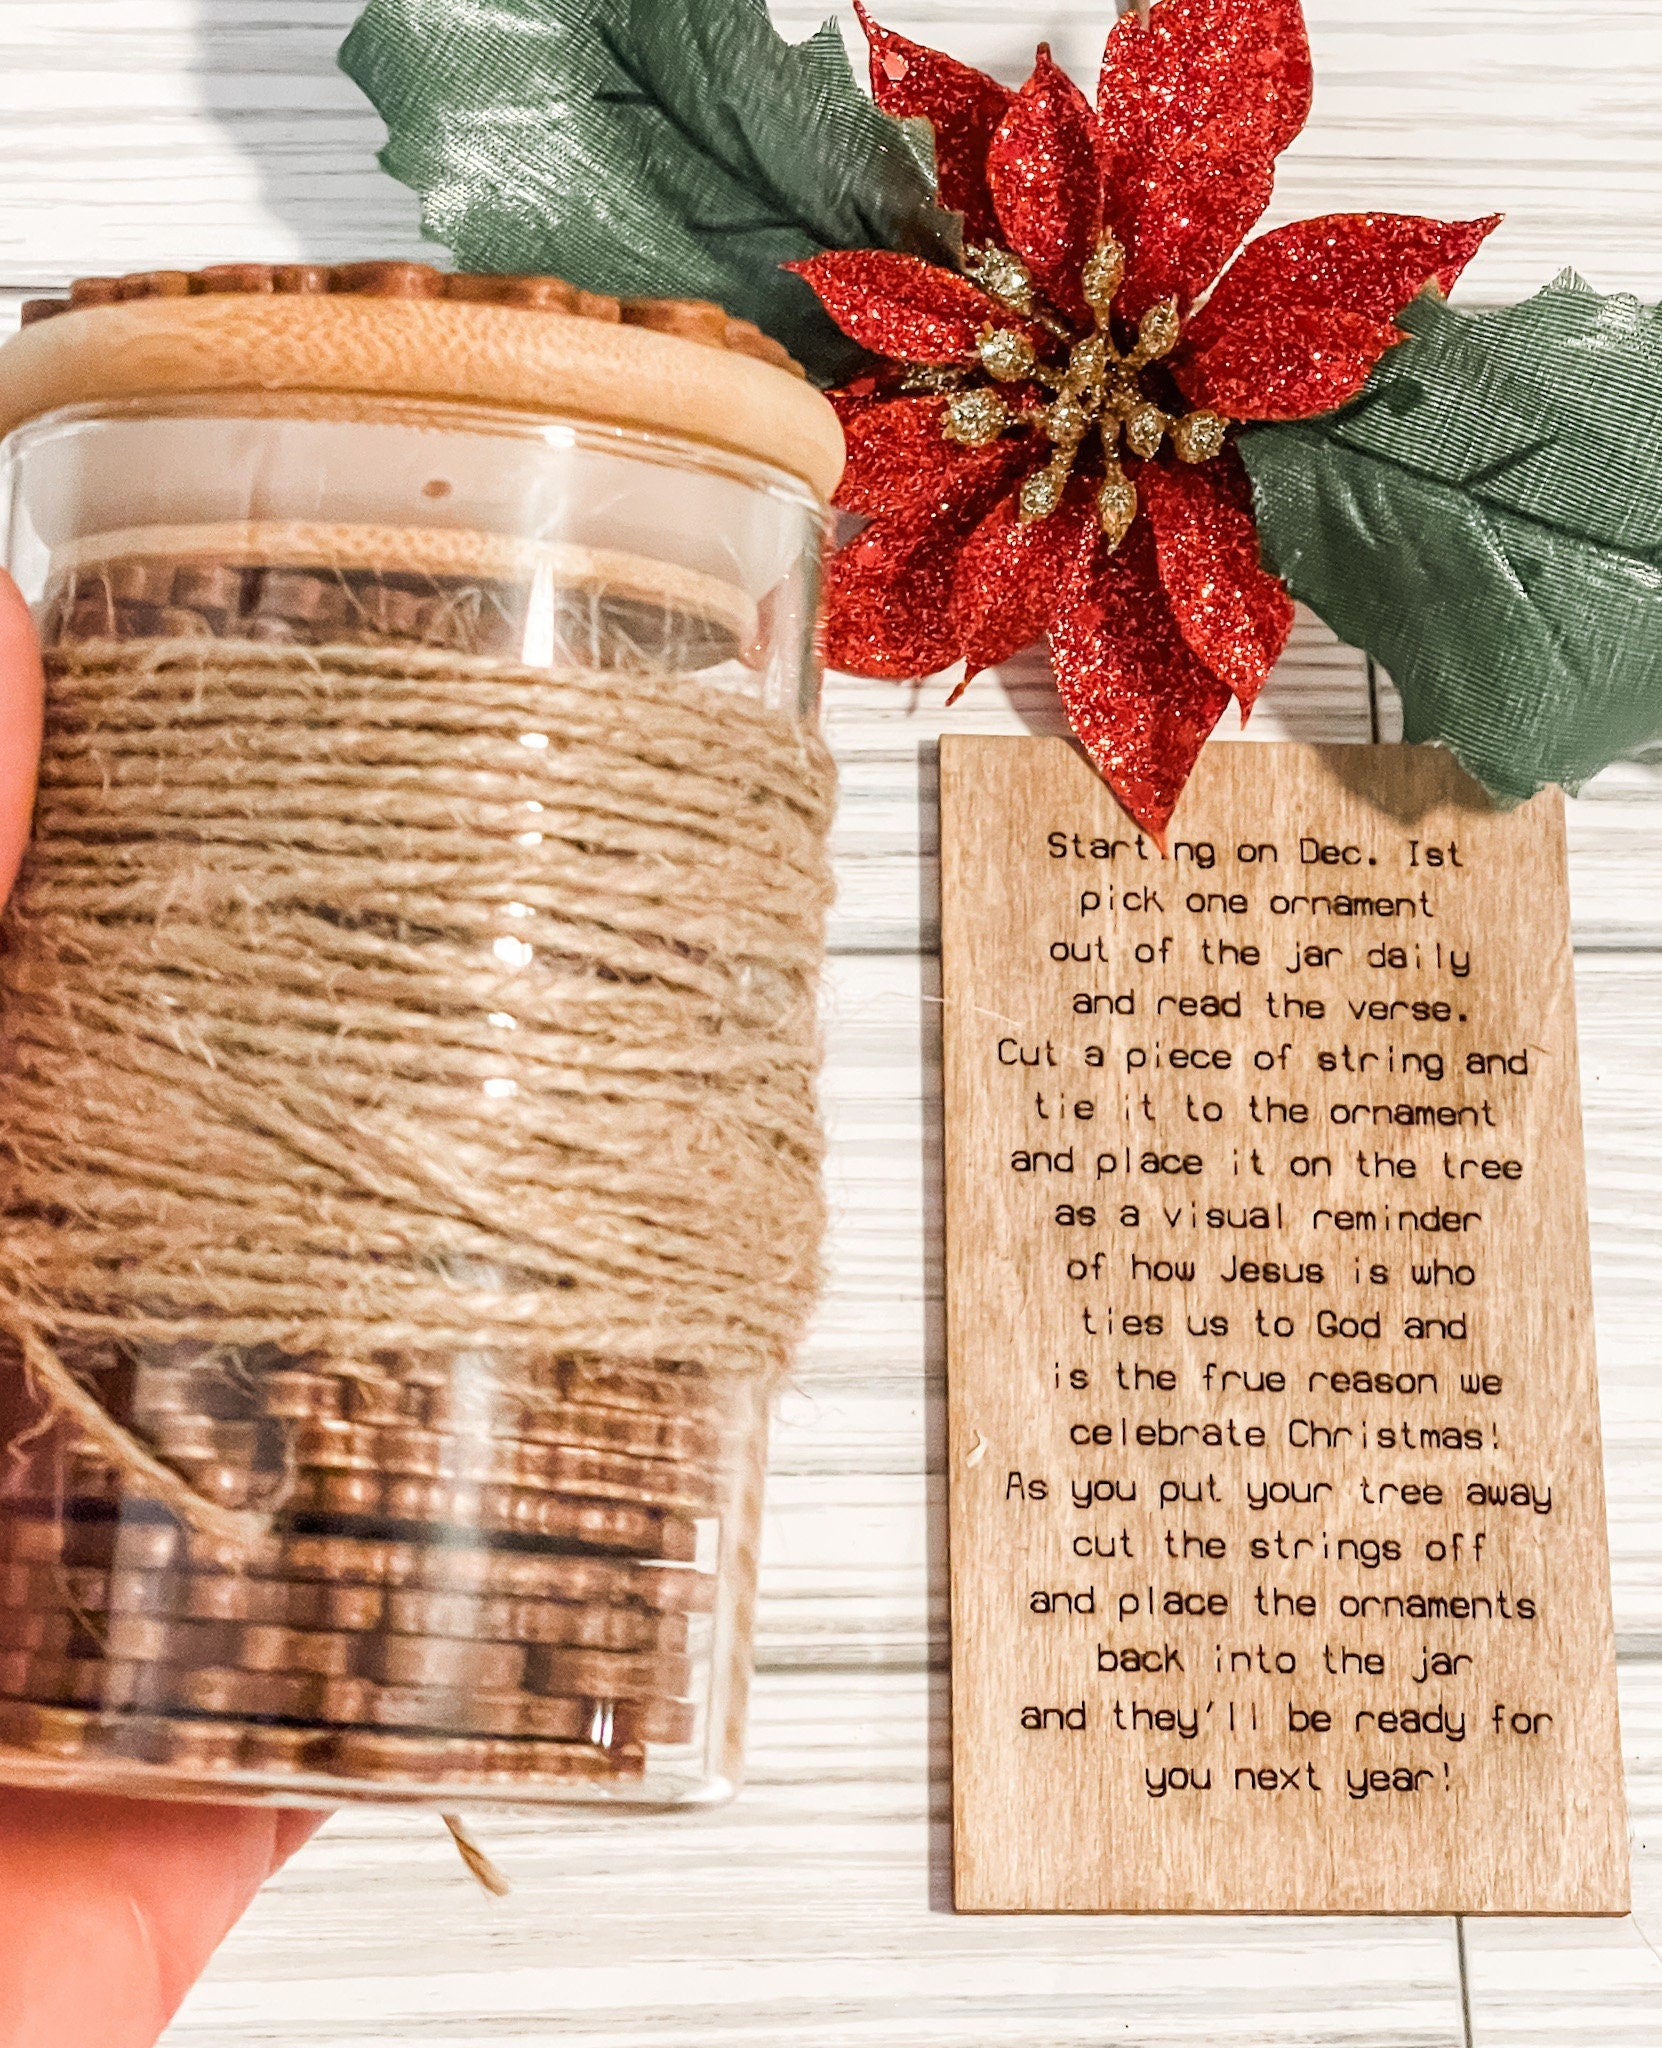 Starting on Dec. 1st
pick one ornament
out of the jar daily
and read the verse.
Cut a piece of string and
tie it to the ornament
and place it on the tree
as a visual reminder
of how Jesus is who
ties us to God and
is the frue reason we
celebrate Christmas!
As you put your tree away
cut the strings off
and place the ornaments
back into the jar
and they'll be ready for
you next year!